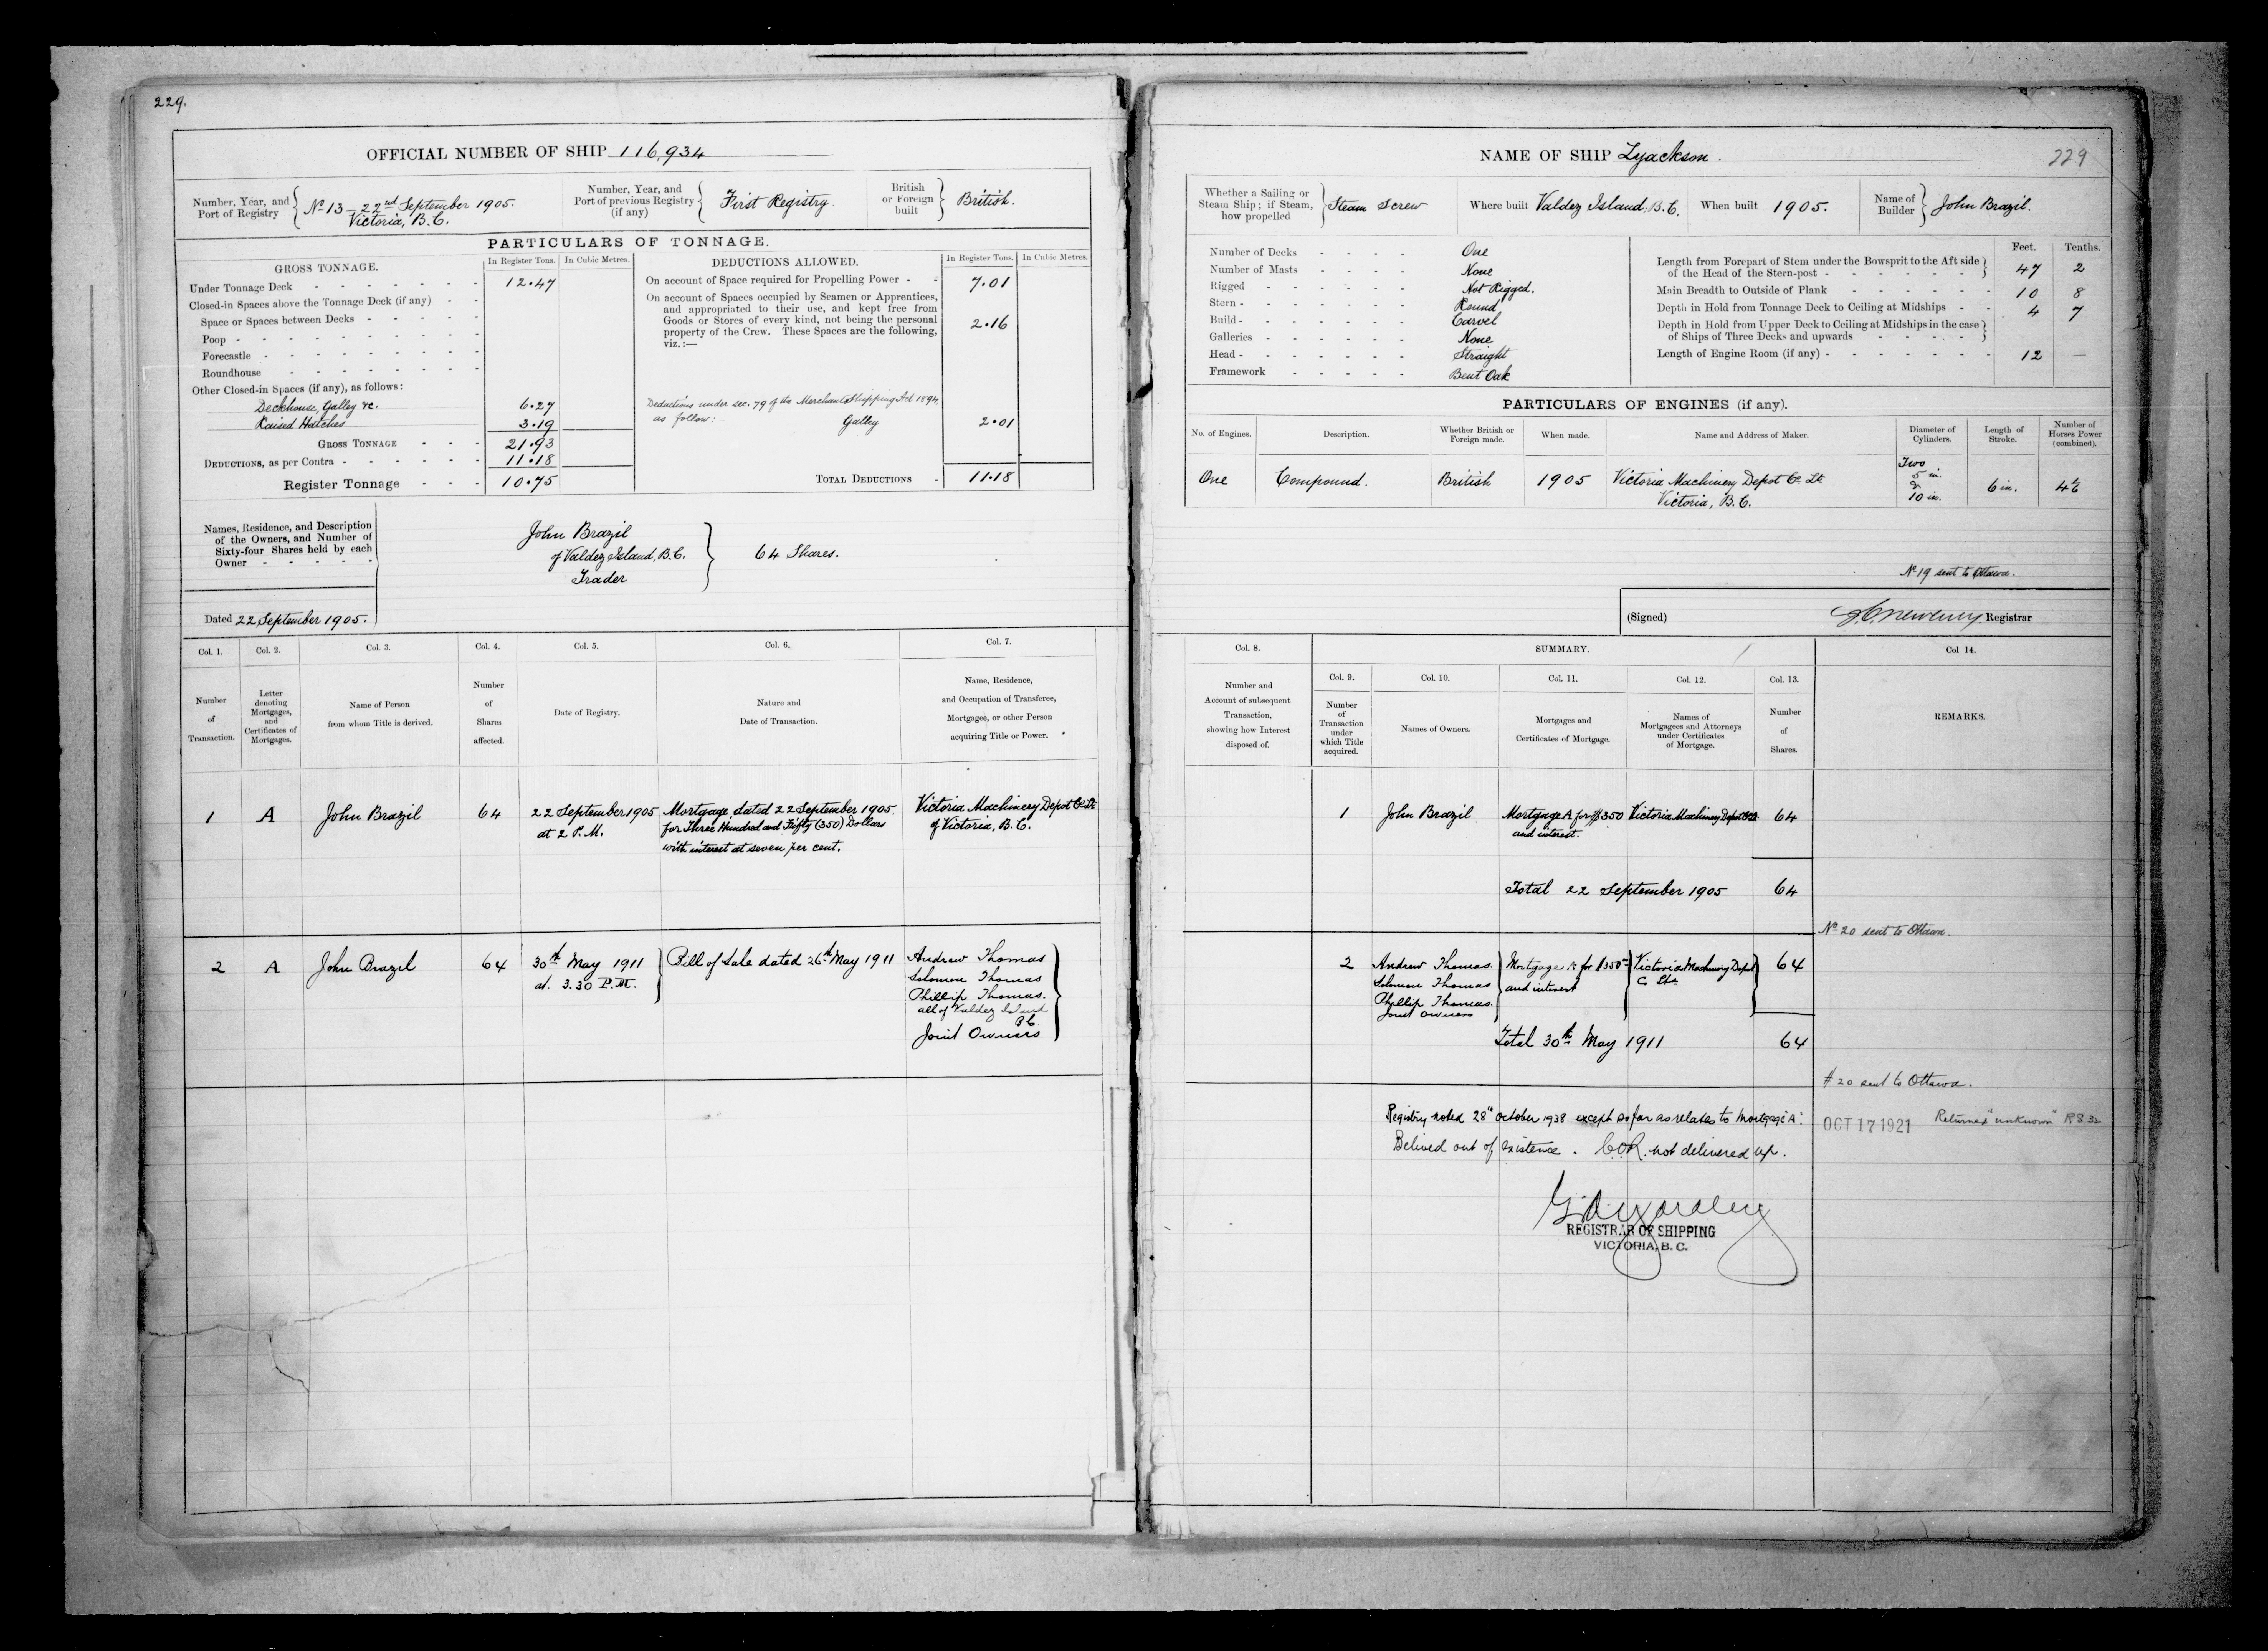 229.
OFFICIAL NUMBER OF SHIP 116,934
Number, Year, and Port of Registry { No 13 – 22nd September 1905. Victoria, B.C.
Number, Year, and Port of previous Registry (if any) { First Registry.
British or Foreign built } British.
PARTICULARS OF TONNAGE.
GROSS TONNAGE. In Register Tons. In Cubic Metres.
Under Tonnage Deck - - - 12.47
Closed-in Spaces above the Tonnage Deck (if any) - -
Space or Spaces between Decks - - -
Poop - - -
Forecastle - - -
Roundhouse - - -
Other Closed-in Spaces (if any), as follows:
Deckhouse, Galley &c. 6.27
Raised Hatches 3.19
GROSS TONNAGE - - - 21.93
DEDUCTIONS, as per Contra - - - 11.18
Register Tonnage - - - 10.75
DEDUCTIONS ALLOWED. In Register Tons. In Cubic Metres.
On account of Space required for Propelling Power - - 7.01
On account of Spaces occupied by Seamen or Apprentices,
and appropriated to their use, and kept free from
Goods or Stores of every kind, not being the personal
property of the Crew. These Spaces are the following,
viz.:— 2.16
Deductions under sec. 79 of the Merchant Shipping Act 1894
as follow: Galley 2.01
TOTAL DEDUCTIONS - 11.18
Names, Residence, and Description
of the Owners, and Number of
Sixty-four Shares held by each
Owner - - - - -
John Brazil
of Valdez Island, B.C. } 64 Shares.
Trader
Dated 22 September 1905.
Col. 1. Col. 2. Col. 3. Col. 4. Col. 5. Col. 6. Col. 7.
Number of Transaction.
Letter denoting Mortgages, and Certificates of Mortgages.
Name of Person from whom Title is derived.
Number of Shares affected.
Date of Registry.
Nature and Date of Transaction.
Name, Residence, and Occupation of Transferee, Mortgagee, or other Person acquiring Title or Power.
1 A John Brazil 64
22 September 1905
at 2 P.M.
Mortgage dated 22 September 1905
for Three Hundred and Fifty (350) Dollars
with interest at seven per cent.
Victoria Machinery Depot Co. Lt
of Victoria, B.C.
2 A John Brazil 64
30th May 1911
at 3.30 P.M.
Bill of Sale dated 26th May 1911
Andrew Thomas
Solomon Thomas
Phillip Thomas.
all of Valdez Island
BC
Joint Owners
NAME OF SHIP Lyackson.
229
Whether a Sailing or Steam Ship; if Steam, how propelled } Steam Screw
Where built Valdez Island, B.C.
When built 1905.
Name of Builder } John Brazil.
Number of Decks - - - - One
Number of Masts - - - - None
Rigged - - - - Not Rigged.
Stern - - - - Round
Build - - - - Carvel
Galleries - - - - None
Head - - - - Straight
Framework - - - - Bent Oak
Feet. Tenths.
Length from Forepart of Stem under the Bowsprit to the Aft side
of the Head of the Stern-post - - - 47 2
Main Breadth to Outside of Plank - - - 10 8
Depth in Hold from Tonnage Deck to Ceiling at Midships - - 4 7
Depth in Hold from Upper Deck to Ceiling at Midships in the case
of Ships of Three Decks and upwards - - - -
Length of Engine Room (if any) - - - 12 —
PARTICULARS OF ENGINES (if any).
No. of Engines. Description. Whether British or Foreign made. When made. Name and Address of Maker. Diameter of Cylinders. Length of Stroke. Number of Horses Power (combined).
One Compound. British 1905 Victoria Machinery Depot Co. Lt
Victoria, B.C.
Two
5 in.
&
10 in.
6 in.
No 19 sent to Ottawa.
(Signed) Registrar
Col. 8. SUMMARY. Col 14.
Col. 9. Col. 10. Col. 11. Col. 12. Col. 13.
Number and Account of subsequent Transaction, showing how Interest disposed of.
Number of Transaction under which Title acquired.
Names of Owners.
Mortgages and Certificates of Mortgage.
Names of Mortgagees and Attorneys under Certificates of Mortgage.
Number of Shares.
REMARKS.
1 John Brazil Mortgage A for $350 Victoria Machinery Depot Co Lt 64
and interest.
Total 22 September 1905 64
No 20 sent to Ottawa.
2 Andrew Thomas Mortgage A for $350 Victoria Machinery Depot 64
Solomon Thomas and interest Co Ltd
Phillip Thomas.
Joint Owners
Total 30th May 1911 64
# 20 sent to Ottawa.
Registry noted 28th October 1938 except as far as relates to Mortgage "A".
Belived out of existence. C.O.R. not delivered up.
OCT 17 1921 Returned "unknown" RS 32
REGISTRAR OF SHIPPING
VICTORIA, B. C.